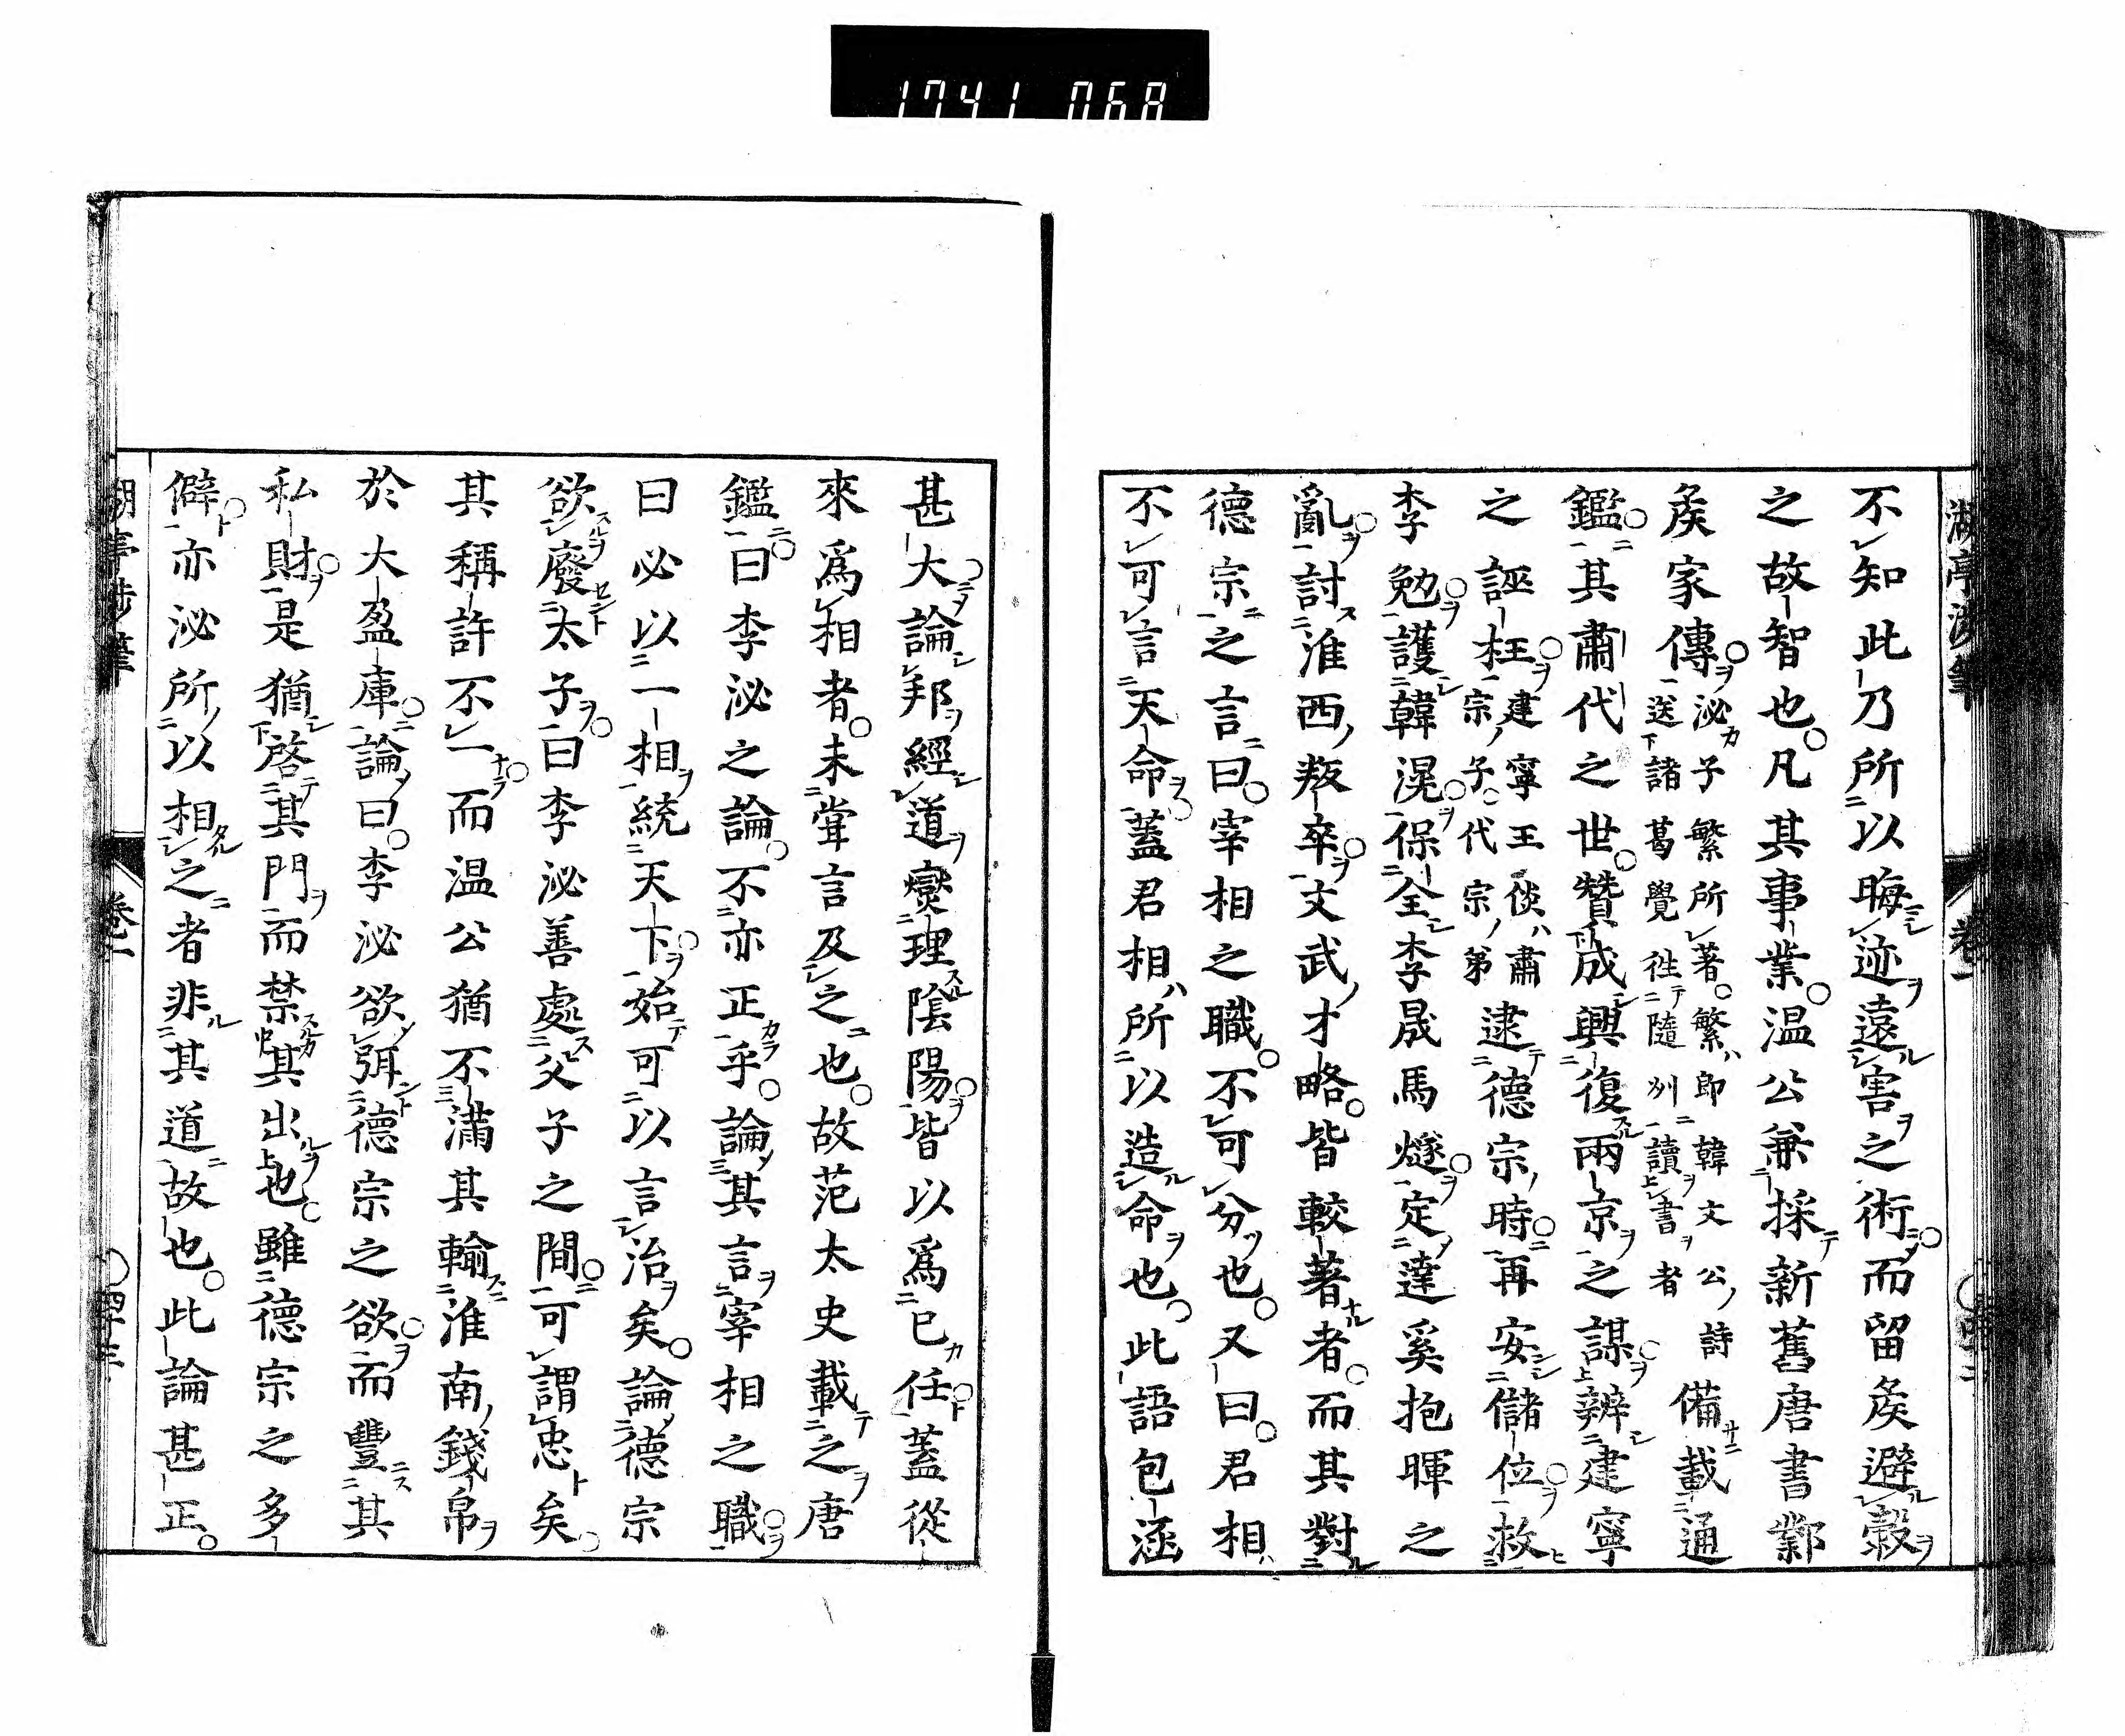 1741 068
不知此乃所以晦迹遠害之術而留矦避穀
之故智也凡其事業温公兼採新舊唐書鄴
矦家傳泌子繁所著繁即韓文公詩
送諸葛覺徃隨州讀書者
備載通
鑑其肅代之世贊成興復兩京之謀辨建寧
之誣枉建寧王倓肅
宗子代宗弟
逮德宗時再安儲位救
李勉護韓滉保全李晟馬燧定達奚抱暉之
亂討淮西叛卒文武才略皆較著者而其對
德宗之言曰宰相之職不可分也又曰君相
不可言天命蓋君相所以造命也此語包涵
甚大論邦經道燮理陰陽皆以為已任蓋從
來爲相者未甞言及之也故范太史載之唐
鑑曰李泌之論不亦正乎論其言宰相之職
曰必以一相統天下始可以言治矣論德宗
欲廢太子曰李泌善處父子之間可謂忠矣
其稱許不一而温公猶不滿其輸淮南錢帛
於大盈庫論曰李泌欲弭德宗之欲而豐其
私財是猶啓其門而禁其出也雖德宗之多
僻亦泌所以相之者非其道故也此論甚正
卷一